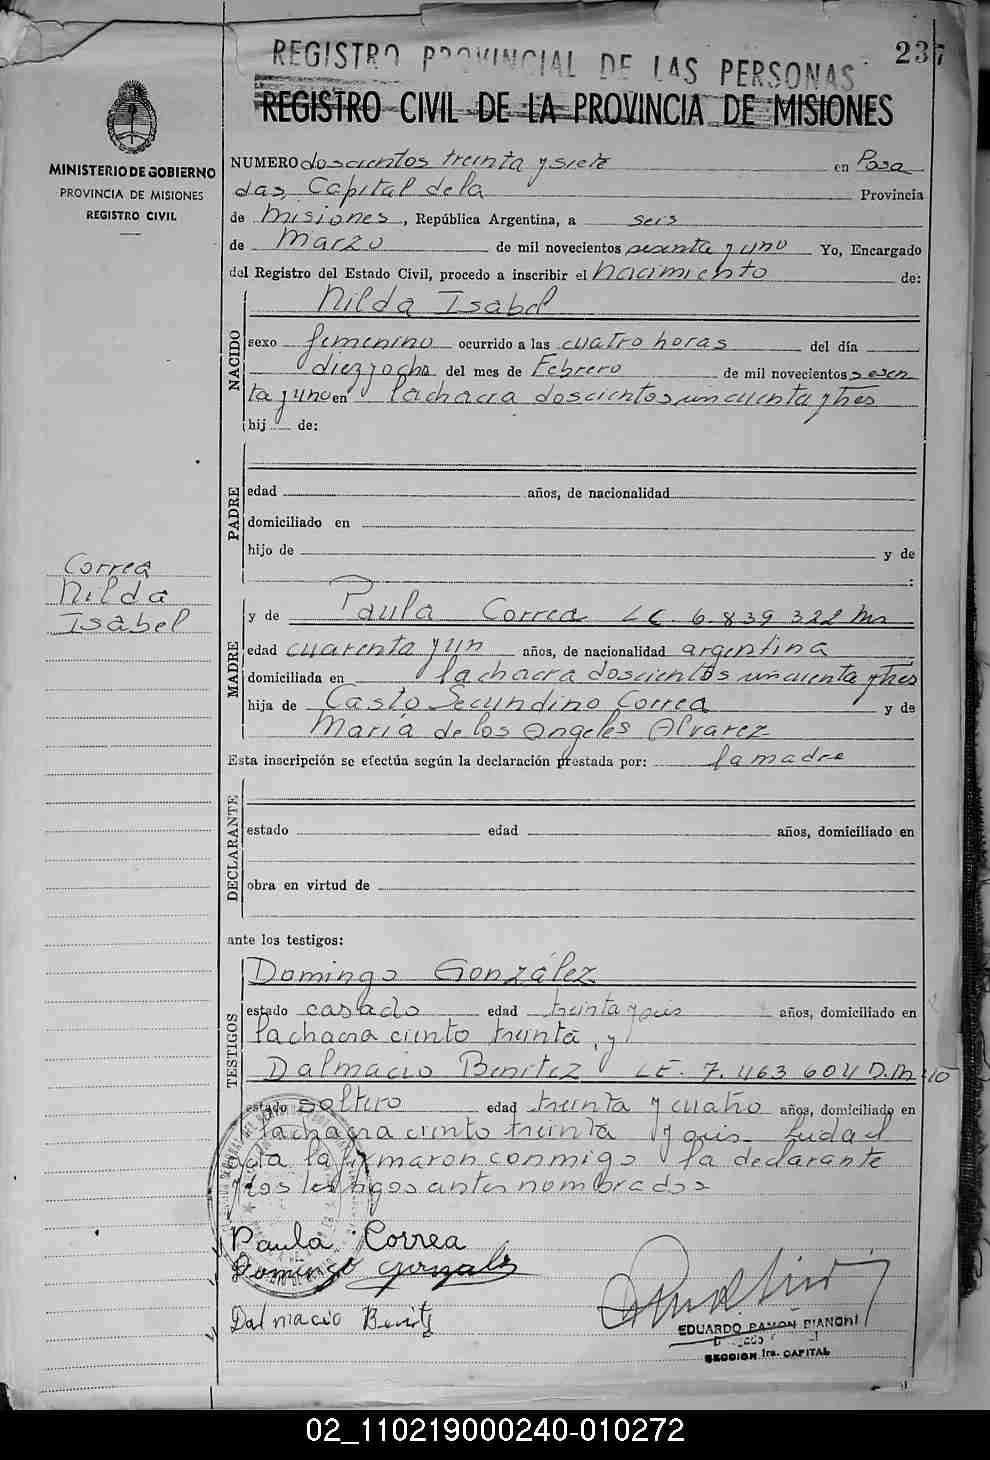 REGISTRO PROVINCIAL DE LAS PERSONAS
237
REGISTRO CIVIL DE LA PROVINCIA DE MISIONES
MINISTERIO DE GOBIERNO
PROVINCIA DE MISIONES
REGISTRO CIVIL
NUMERO doscientos treinta y siete en Posa
das, Capital de la Provincia
de Misiones, República Argentina, a seis
de Marzo de mil novecientos sesenta y uno Yo, Encargado
del Registro del Estado Civil, procedo a inscribir el nacimiento de:
NACIDO
Nilda Isabel
sexo femenino ocurrido a las cuatro horas del día
diez y ocho del mes de Febrero de mil novecientos sesen
ta y uno en la chacra doscientos cincuenta y tres
hij de:
PADRE
edad años, de nacionalidad
domiciliado en
hijo de y de
:
Correa
Nilda
Isabel
MADRE
y de Paula Correa LC. 6.839.322
edad cuarenta y un años, de nacionalidad argentina
domiciliada en la chacra doscientos cincuenta y tres
hija de Casto Secundino Correa y de
María de los Angeles Alvarez
Esta inscripción se efectúa según la declaración prestada por: la madre
DECLARANTE
estado edad años, domiciliado en
obra en virtud de
ante los testigos:
TESTIGOS
Domingo González
estado casado edad treinta y seis años, domiciliado en
la chacra ciento treinta, y
Dalmacio Benitez LE. 7.463.604 D.M.
estado soltero edad treinta y cuatro años, domiciliado en
la chacra ciento treinta y seis. Leída el
acta la firmaron conmigo la declarante
y los testigos antes nombrados
Paula Correa
Domingo Gonzalez
Dalmacio Benitez
EDUARDO RAMON BIANCHI
SECCION 1ra. CAPITAL
02_110219000240-010272